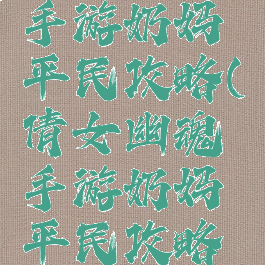 手游奶妈
平民攻略(
倩女幽魂
手游奶妈
平民攻略